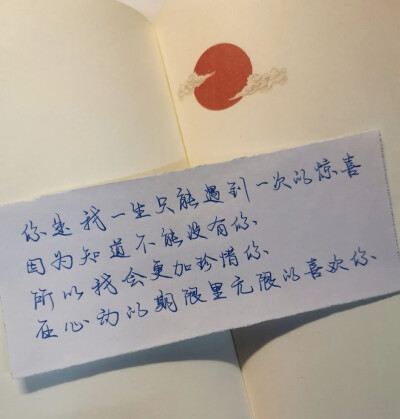 你是我一生只能遇到一次的惊喜
因为知道不能没有你、
所以我会更加珍惜你、
在心动的期限里无限的喜欢你、